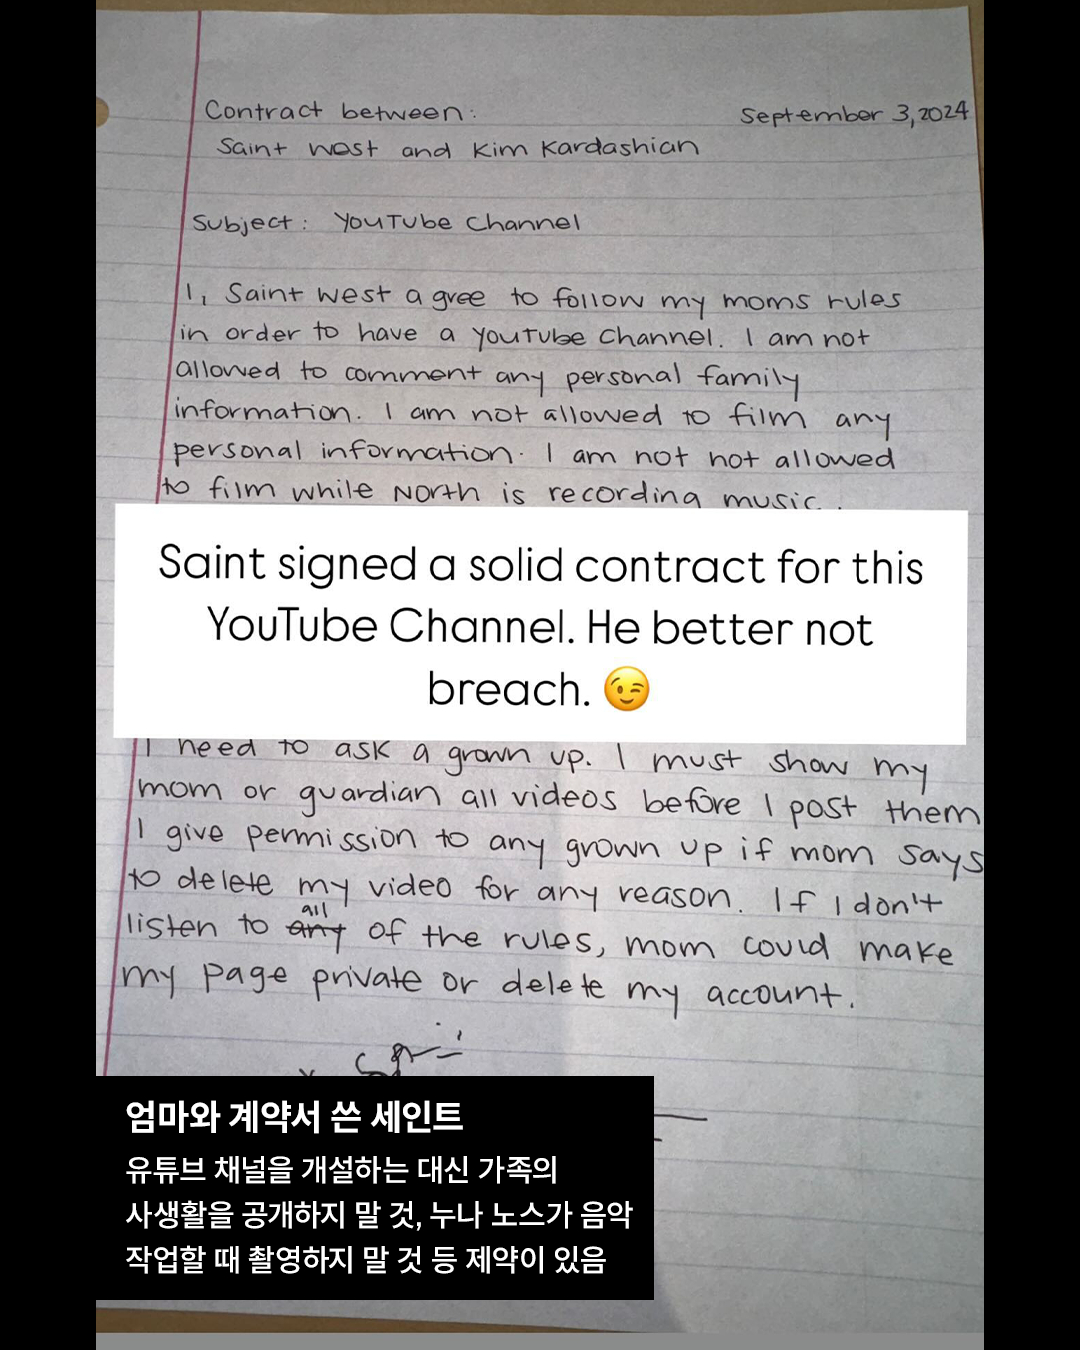 Contract between:
September 3, 2024
Saint West and Kim Kardashian
Subject: YouTube Channel
I, Saint West agree to follow my moms rules
in order to have a YouTube Channel. I am not
allowed to comment any personal family
information. I am not allowed to film any
personal information. I am not not allowed
to film while North is recording music.
Saint signed a solid contract for this
YouTube Channel. He better not
breach. 😉
I need to ask a grown up. I must show my
mom or guardian all videos before I post them
I give permission to any grown up if mom says
to delete my video for any reason. If I don't
all
listen to any of the rules, mom could make
my page private or delete my account.
x
엄마와 계약서 쓴 세인트
유튜브 채널을 개설하는 대신 가족의
사생활을 공개하지 말 것, 누나 노스가 음악
작업할 때 촬영하지 말 것 등 제약이 있음